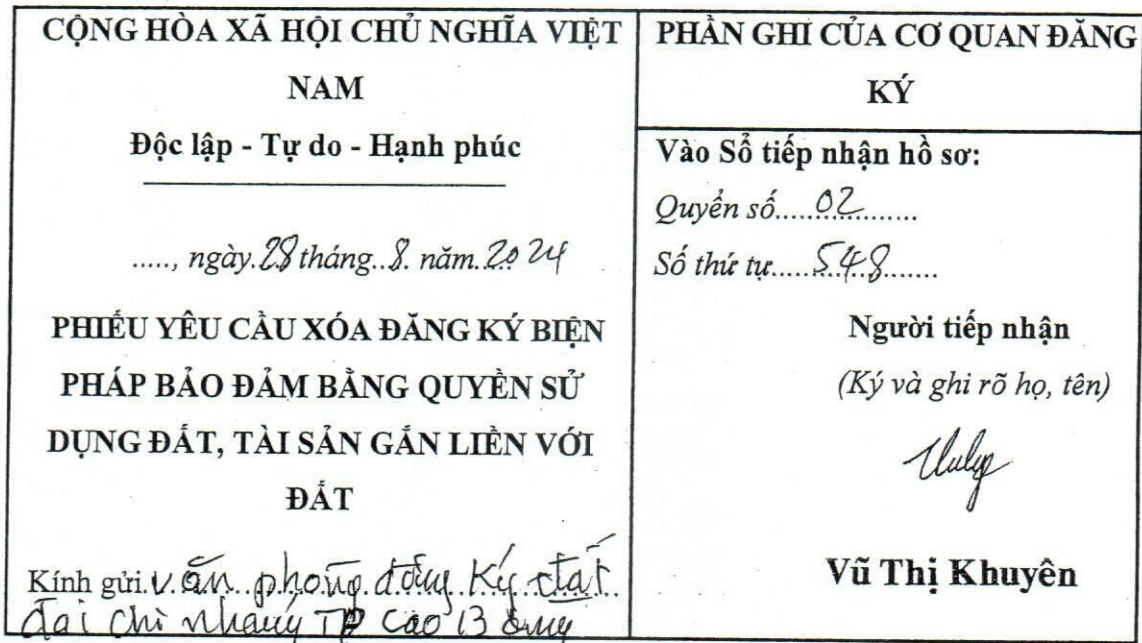 CỘNG HÒA XÃ HỘI CHỦ NGHĨA VIỆT
NAM
Độc lập - Tự do - Hạnh phúc
....., ngày.28 tháng..8. năm.2024
PHIẾU YÊU CẦU XÓA ĐĂNG KÝ BIỆN
PHÁP BẢO ĐẢM BẰNG QUYỀN SỬ
DỤNG ĐẤT, TÀI SẢN GẮN LIỀN VỚI
ĐẤT
Kính gửi Văn phòng đăng ký đất
đai chi nhánh TP Cao Bằng
PHẦN GHI CỦA CƠ QUAN ĐĂNG
KÝ
Vào Sổ tiếp nhận hồ sơ:
Quyển số.....02..........
Số thứ tự.....548........
Người tiếp nhận
(Ký và ghi rõ họ, tên)
Vũ Thị Khuyên